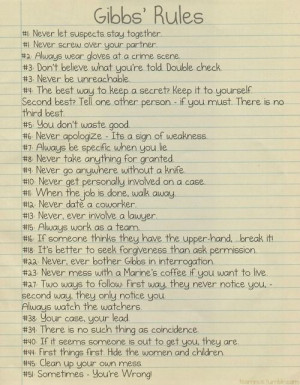 Gibbs' Rules
#1: Never let suspects stay together.
#1: Never screw over your partner.
#2: Always wear gloves at a crime scene.
#3: Don't believe what you're told. Double check.
#3: Never be unreachable.
#4: The best way to keep a secret? Keep it to yourself.
Second best? Tell one other person - if you must. There is no
third best.
#5: You don't waste good.
#6: Never apologize - Its a sign of weakness.
#7: Always be specific when you lie.
#8: Never take anything for granted.
#9: Never go anywhere without a knife.
#10: Never get personally involved on a case.
#11: When the job is done, walk away.
#12: Never date a coworker.
#13: Never, ever involve a lawyer.
#15: Always work as a team.
#16: If someone thinks they have the upper-hand, ...break it!
#18: It's better to seek forgiveness than ask permission.
#22: Never, ever bother Gibbs in interrogation.
#23: Never mess with a Marine's coffee if you want to live.
#27: Two ways to follow. First way, they never notice you, -
second way, they only notice you.
Always watch the watchers.
#38: Your case, your lead.
#39: There is no such thing as coincidence.
#40: If it seems someone is out to get you, they are.
#44: First things first. Hide the women and children.
#45: Clean up your own mess.
#51: Sometimes - You're Wrong!